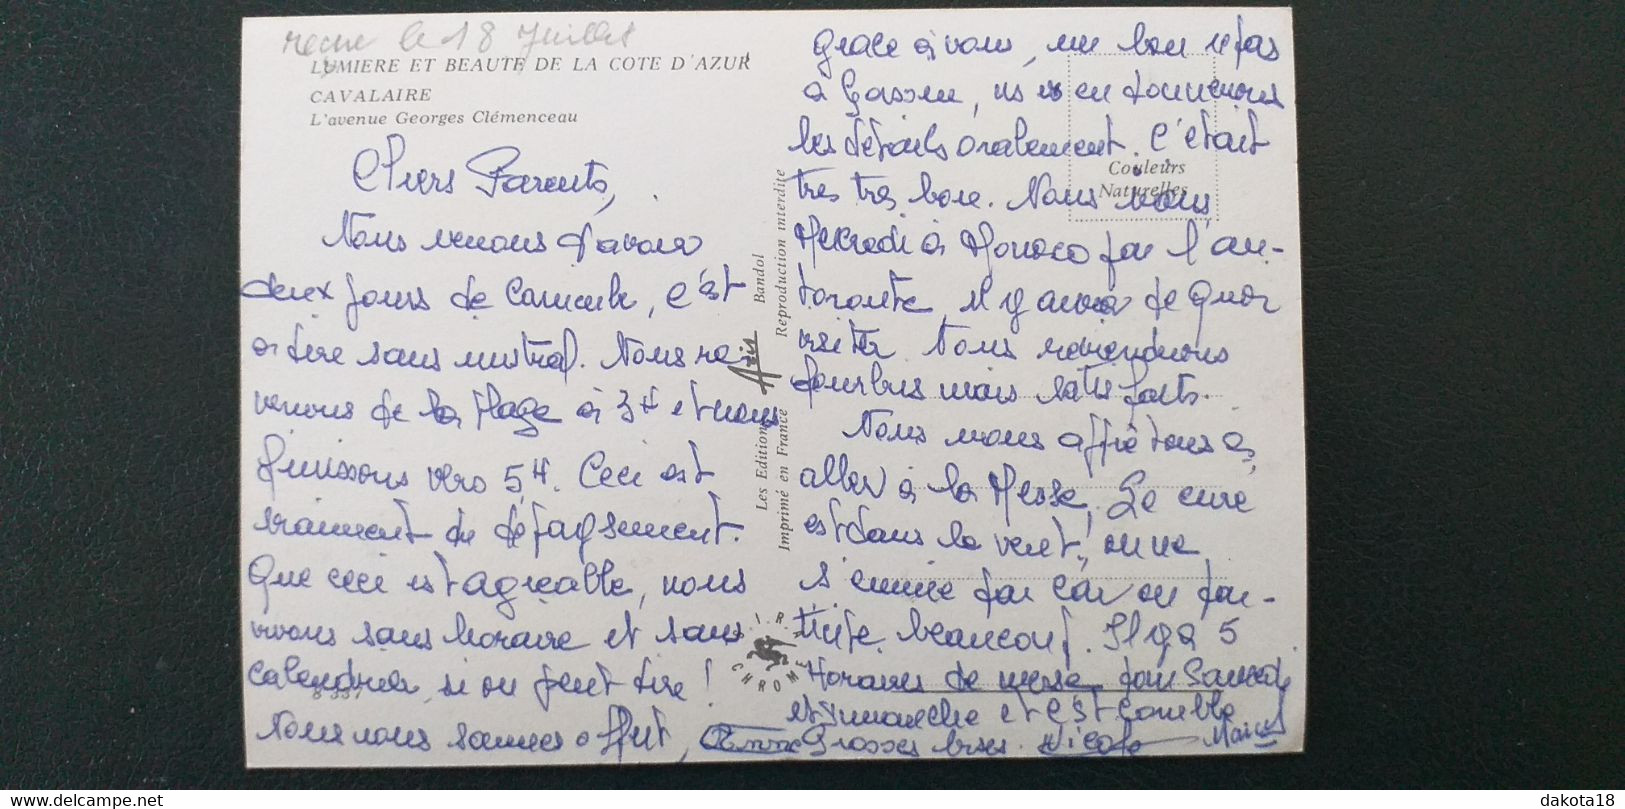 reçue le 18 Juillet
LUMIERE ET BEAUTE DE LA COTE D'AZUR
CAVALAIRE
L'avenue Georges Clémenceau
Chers Parents,
Nous venons d'avoir
deux jours de canicule, c'est
à dire sans mistral. Nous re-
venons de la plage à 3H et nous
finissons vers 5H. Ceci est
vraiment du dépaysement.
Que ceci est agréable, nous
vivons sans horaire et sans
calendrier, si on peut dire !
Nous nous sommes offert,
8.357
Les Editions Aris Bandol
Imprimé en France Reproduction interdite
I.R.I.S
CHROME
Couleurs
Naturelles
grace à vous, un bon repas
à Gassin, ns vs en donnerons
les détails oralement. C'était
très très bon. Nous irons
Mercredi à Monaco par l'au-
toroute, il y aura de quoi
visiter. Nous reviendrons
fourbus mais satisfaits.
Nous nous apprêtons à
aller à la Messe. Le curé
est dans le vent! on ne
s'ennuie pas car on
beaucoup. Il y a 5
Horaires de messe pour Samedi
et Dimanche et c'est comble
Grosses bises. Nicole
dakota18